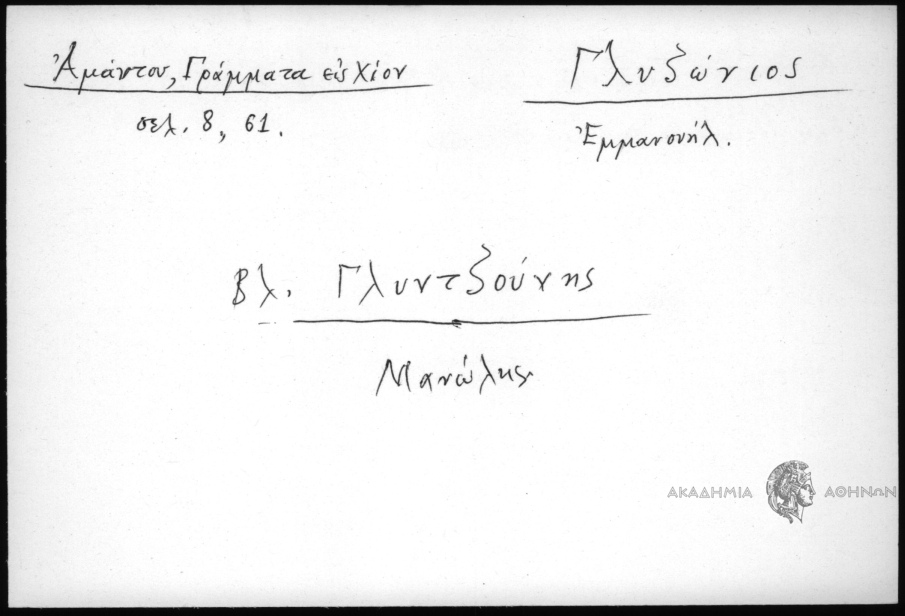 Ἀμάντου, Γράμματα εἰς Χίον
σελ. 8, 61.
Γλυζώνιος
Ἐμμανουήλ.
Βλ. Γλυντζούνης
Μανώλης
ΑΚΑΔΗΜΙΑ ΑΘΗΝΩΝ